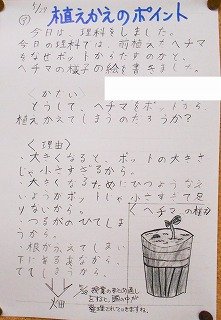 植えかえのポイント
今日は、理科をしました。
今日の理科では、前植えたヘチマ
をなぜポットからだすのかと、
ヘチマの様子の絵を書きました。
〈かだい〉
どうして、ヘチマをポットから、
植えかえてしまうのだろうか?
〈理由〉
・大きくなると、ポットの大きさ
じゃ小さすぎるから。
・大きくなるためにひつような
ようがポットじゃ小さすぎて足
りないから。
・つるがのびてしま
うから。
・根がふえてしまい
下にあるあなから
でてしまうから。
ヘチマの様子
畑